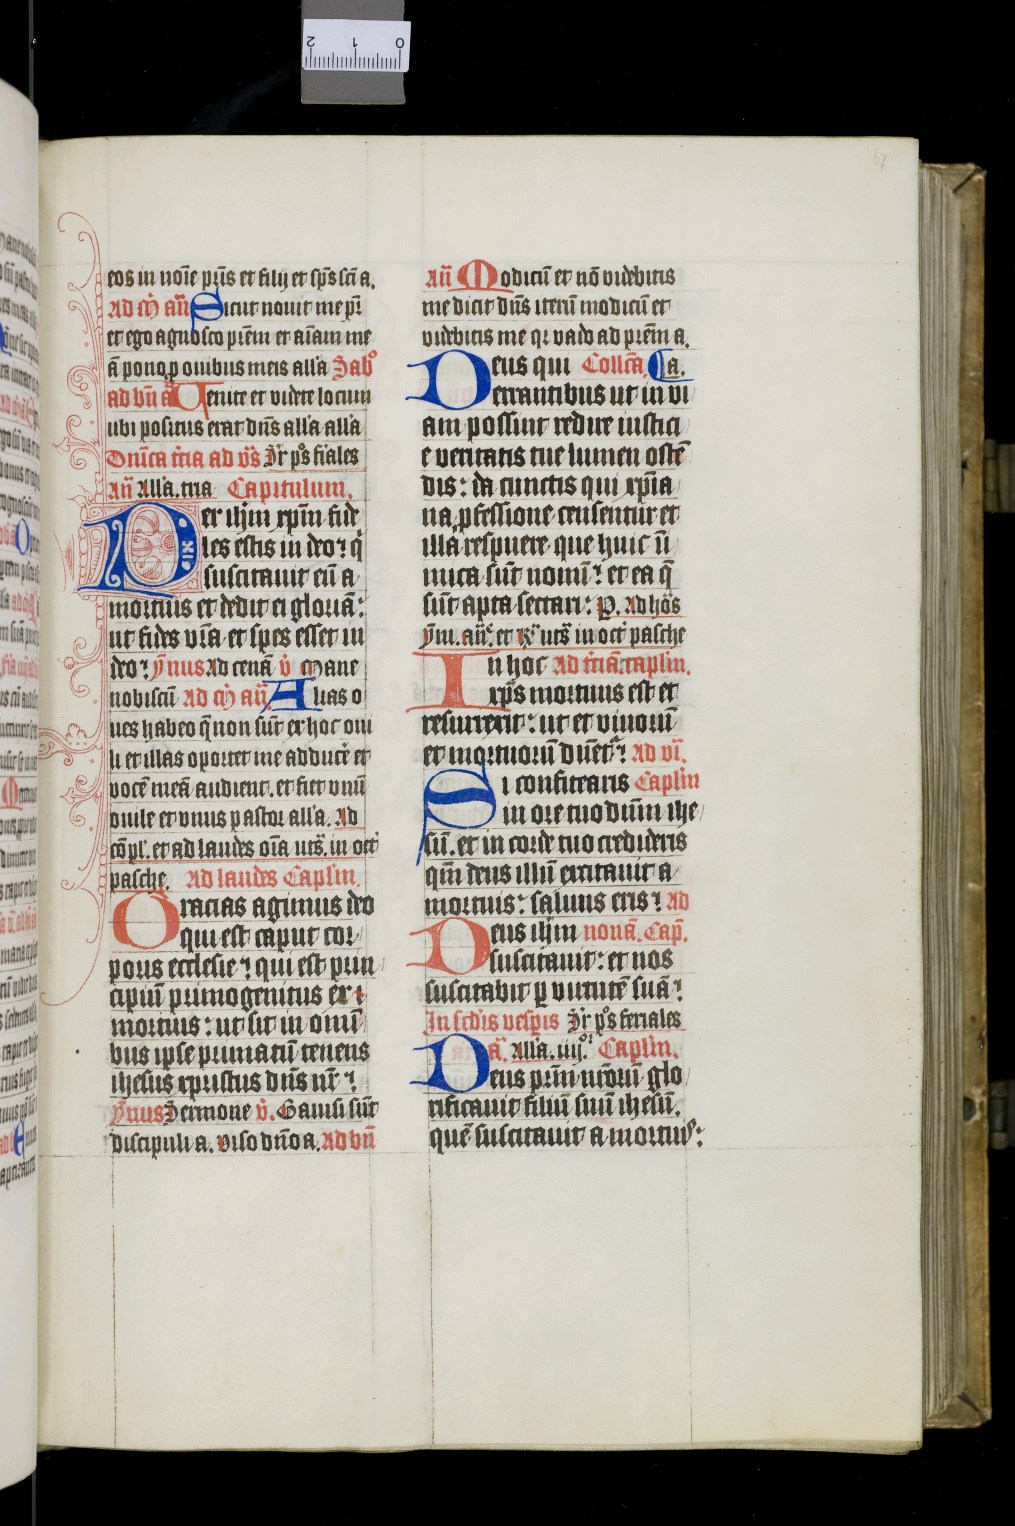 67
eos in noīe pr̄is et filij et sp̄s sc̄i a.
Ad m̄ an̄ Sicut nouit me pr̄
et ego agnosco prēm et aīam me
ā pono p ouibus meis all'a Sabᵒ
ad bn̄ ā Uenite et videte locum
ubi positus erat dn̄s all'a all'a
Dnīca tc̄ia ad vs̄ Sr̄ pᵒs fiales
An̄ All'a. tria Capitulum.
Per ihm xpm̄ fide
les estis in deo: q̇
suscitauit eū a
mortuis et dedit ei gloriā:
ut fides vr̄a et spes esset in
deo: ymnus Ad cenā v̄ Mane
nobiscū Ad m̄ an̄ Alias o
ues habeo q̄ non sūt ex hoc oui
li et illas oportet me adducē et
vocē meā audient. et fiet vnū
ouile et vnus pastor all'a. Ad
cōpl'. et ad laudes oīa uts̄. in oct̄
pasche. Ad laudes Caplm̄.
Gracias agimus deo
qui est caput cor
poris ecclesie: qui est prin
cipiū primogenitus ex
mortuis: ut sit in omī
bus ipse primatū tenens
ihesus xpristus dn̄s nr̄:
ymnus Sermone v̄. Gauisi sūt
discipuli a. Viso dn̄o a. Ad bn̄
An̄ Modicū et nō videbitis
me dicit dn̄s iterū modicū et
videbitis me qr vado ad prēm a.
Deus qui Collc̄a. Ca.
errantibus ut in vi
am possint redire iustici
e veritatis tue lumen ostē
dis: da cunctis qui xp̄ia
na pfessione censentur et
illa respuere que huic n̄
mica sūt nomī: et ea q̄
sūt apta sectari: P. Ad hōs
ym. an̄. et R̄ uts̄ in oct̄ pasche
In hoc Ad tc̄iā caplm̄.
xp̄s mortuus est et
resurrexit: ut et viuorū
et mortuorū dn̄et̄: Ad vi.
Si confitearis Caplm̄
in ore tuo dnm̄ ihe
sū. et in corde tuo credideris
qm̄ deus illū excitauit a
mortuis: saluus eris: Ad
Deus ihm nonā. Cap̄.
suscitauit: et nos
suscitabit p virtutē suā:
In scd̄is vespis Sr̄ pᵒs feriales
a. All'a. iiijᵒʳ Caplm̄.
Deus prm̄ nr̄orū glo
rificauit filiū suū ihesū.
quē suscitauit a mortuis: